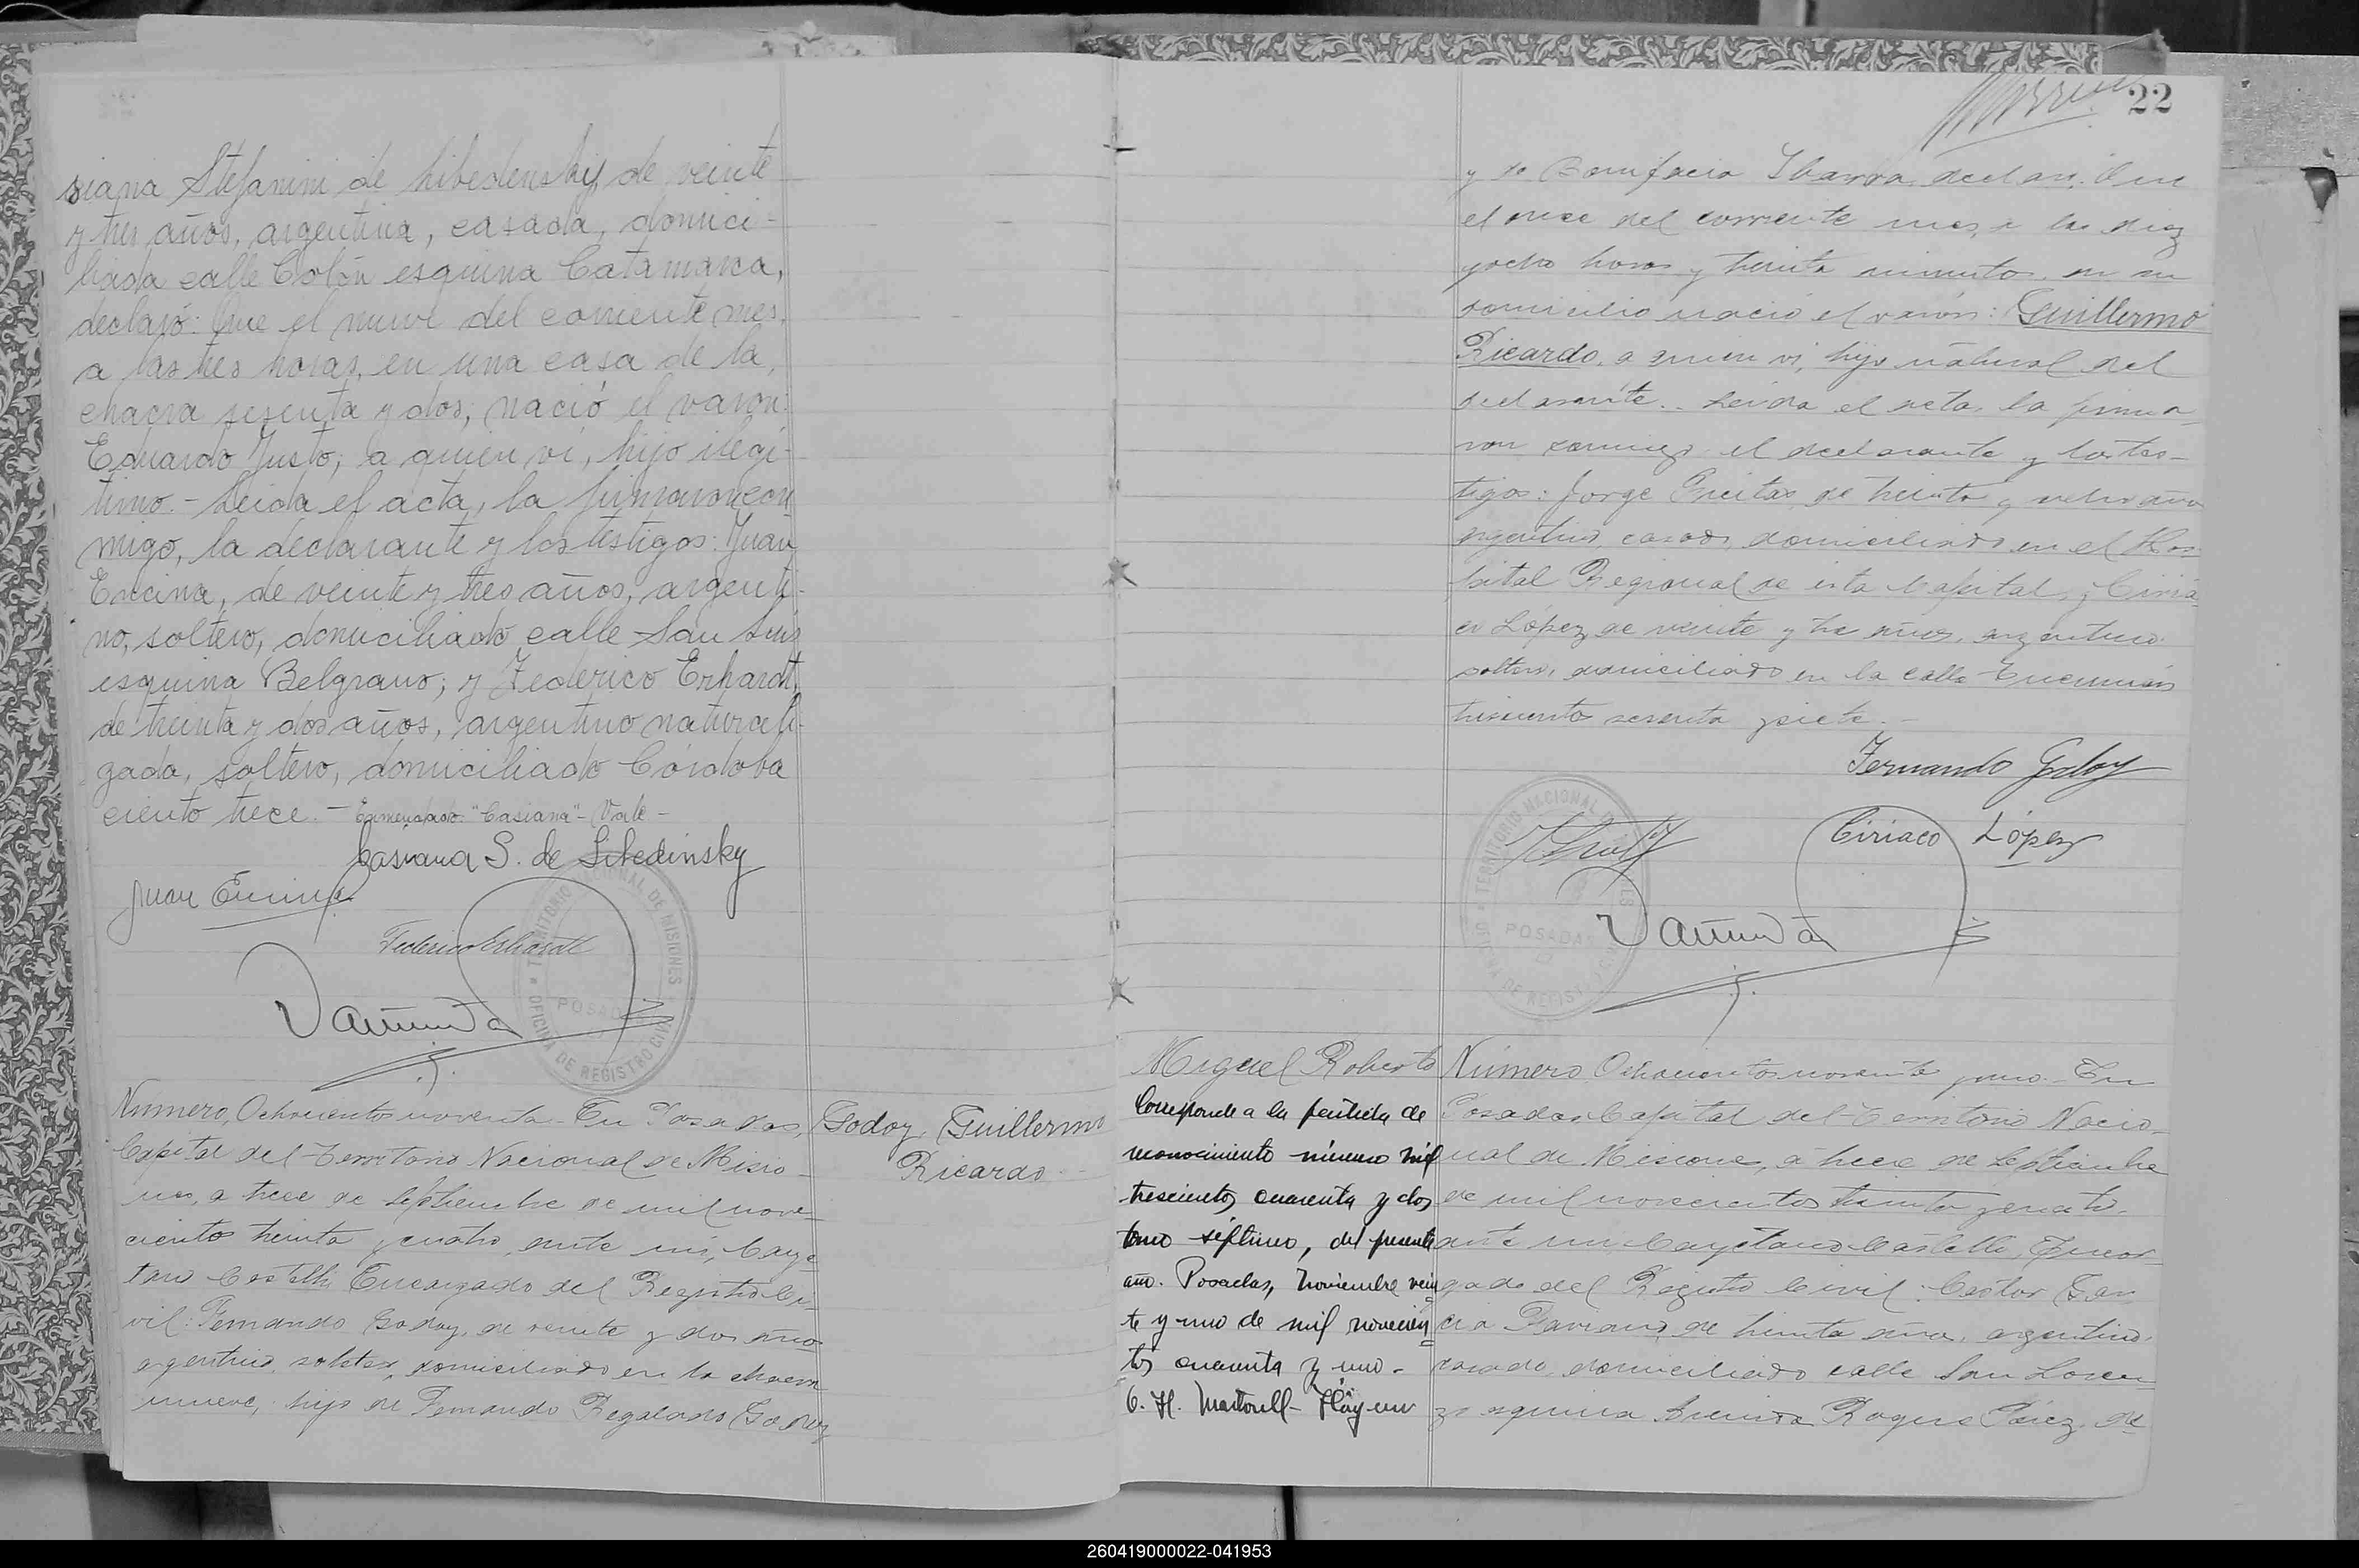 siana Stefanini de Libedensky, de veinte
y tres años, argentina, casada, domici-
liada calle Colón esquina Catamarca,
declaró: Que el nueve del corriente mes,
a las tres horas, en una casa de la,
chacra sesenta y dos, nació el varón:
Eduardo Justo, a quien vi, hijo ilegi-
timo.- Leida el acta, la firmaron con
migo, la declarante y los testigos: Juan
Encina, de veinte y tres años, argenti-
no, soltero, domiciliado calle San Luis
esquina Belgrano; y Federico Erhardt,
de treinta y dos años, argentino naturali-
zado, soltero, domiciliado Córdoba
ciento trece.- Enmendado: "Casiana"- Vale-
Casiana S. de Libedinsky
Juan Encina
Federico Erhardt
TERRITORIO NACIONAL DE MISIONES
POSADAS
OFICINA DE REGISTRO CIVIL
Número, Ochocientos noventa.- En Posadas,
Capital del Territorio Nacional de Misio-
nes, a trece de Septiembre de mil nove-
cientos treinta y cuatro, ante mí, Caye
tano Castelli Encargado del Registro Ci-
vil: Fernando Godoy, de veinte y dos años
argentino, soltero, domiciliado en la chacra
nueve, hijo de Fernando Regalado Godoy
Godoy, Guillermo
Ricardo
22
y de Bonifacia Ibarra, declaró: Que
el once del corriente mes, a las diez
y ocho horas y treinta minutos, en su
domicilio nació el varón: Guillermo
Ricardo, a quien vi, hijo natural del
declarante.- Leida el acta, la firma-
ron conmigo el declarante y los tes-
tigos: Jorge Freitas, de treinta y ocho años
argentino, casado, domiciliado en el Hos-
pital Regional de esta Capital, y Ciria-
co López, de veinte y tres años, argentino
soltero, domiciliado en la calle Tucumán
trescientos sesenta y siete.-
Fernando Godoy
Ciriaco López
TERRITORIO NACIONAL
POSADAS
OFICINA DE REGISTRO CIVIL
Miguel Roberto
Corresponde a la partida de
reconocimiento número mil
trescientos cuarenta y dos
tomo séptimo, del presente
año. Posadas, Noviembre vein
te y uno de mil novecien
tos cuarenta y uno.-
Número, Ochocientos noventa y uno.- En
Posadas, Capital del Territorio Nacio-
nal de Misiones, a trece de Septiembre
de mil novecientos treinta y cuatro,
ante mí Cayetano Castelli, Encar-
gado del Registro Civil: Castor Gar
cia, de treinta años, argentino,
casado, domiciliado calle San Loren-
zo esquina Avenida Roque Pérez, de
260419000022-041953